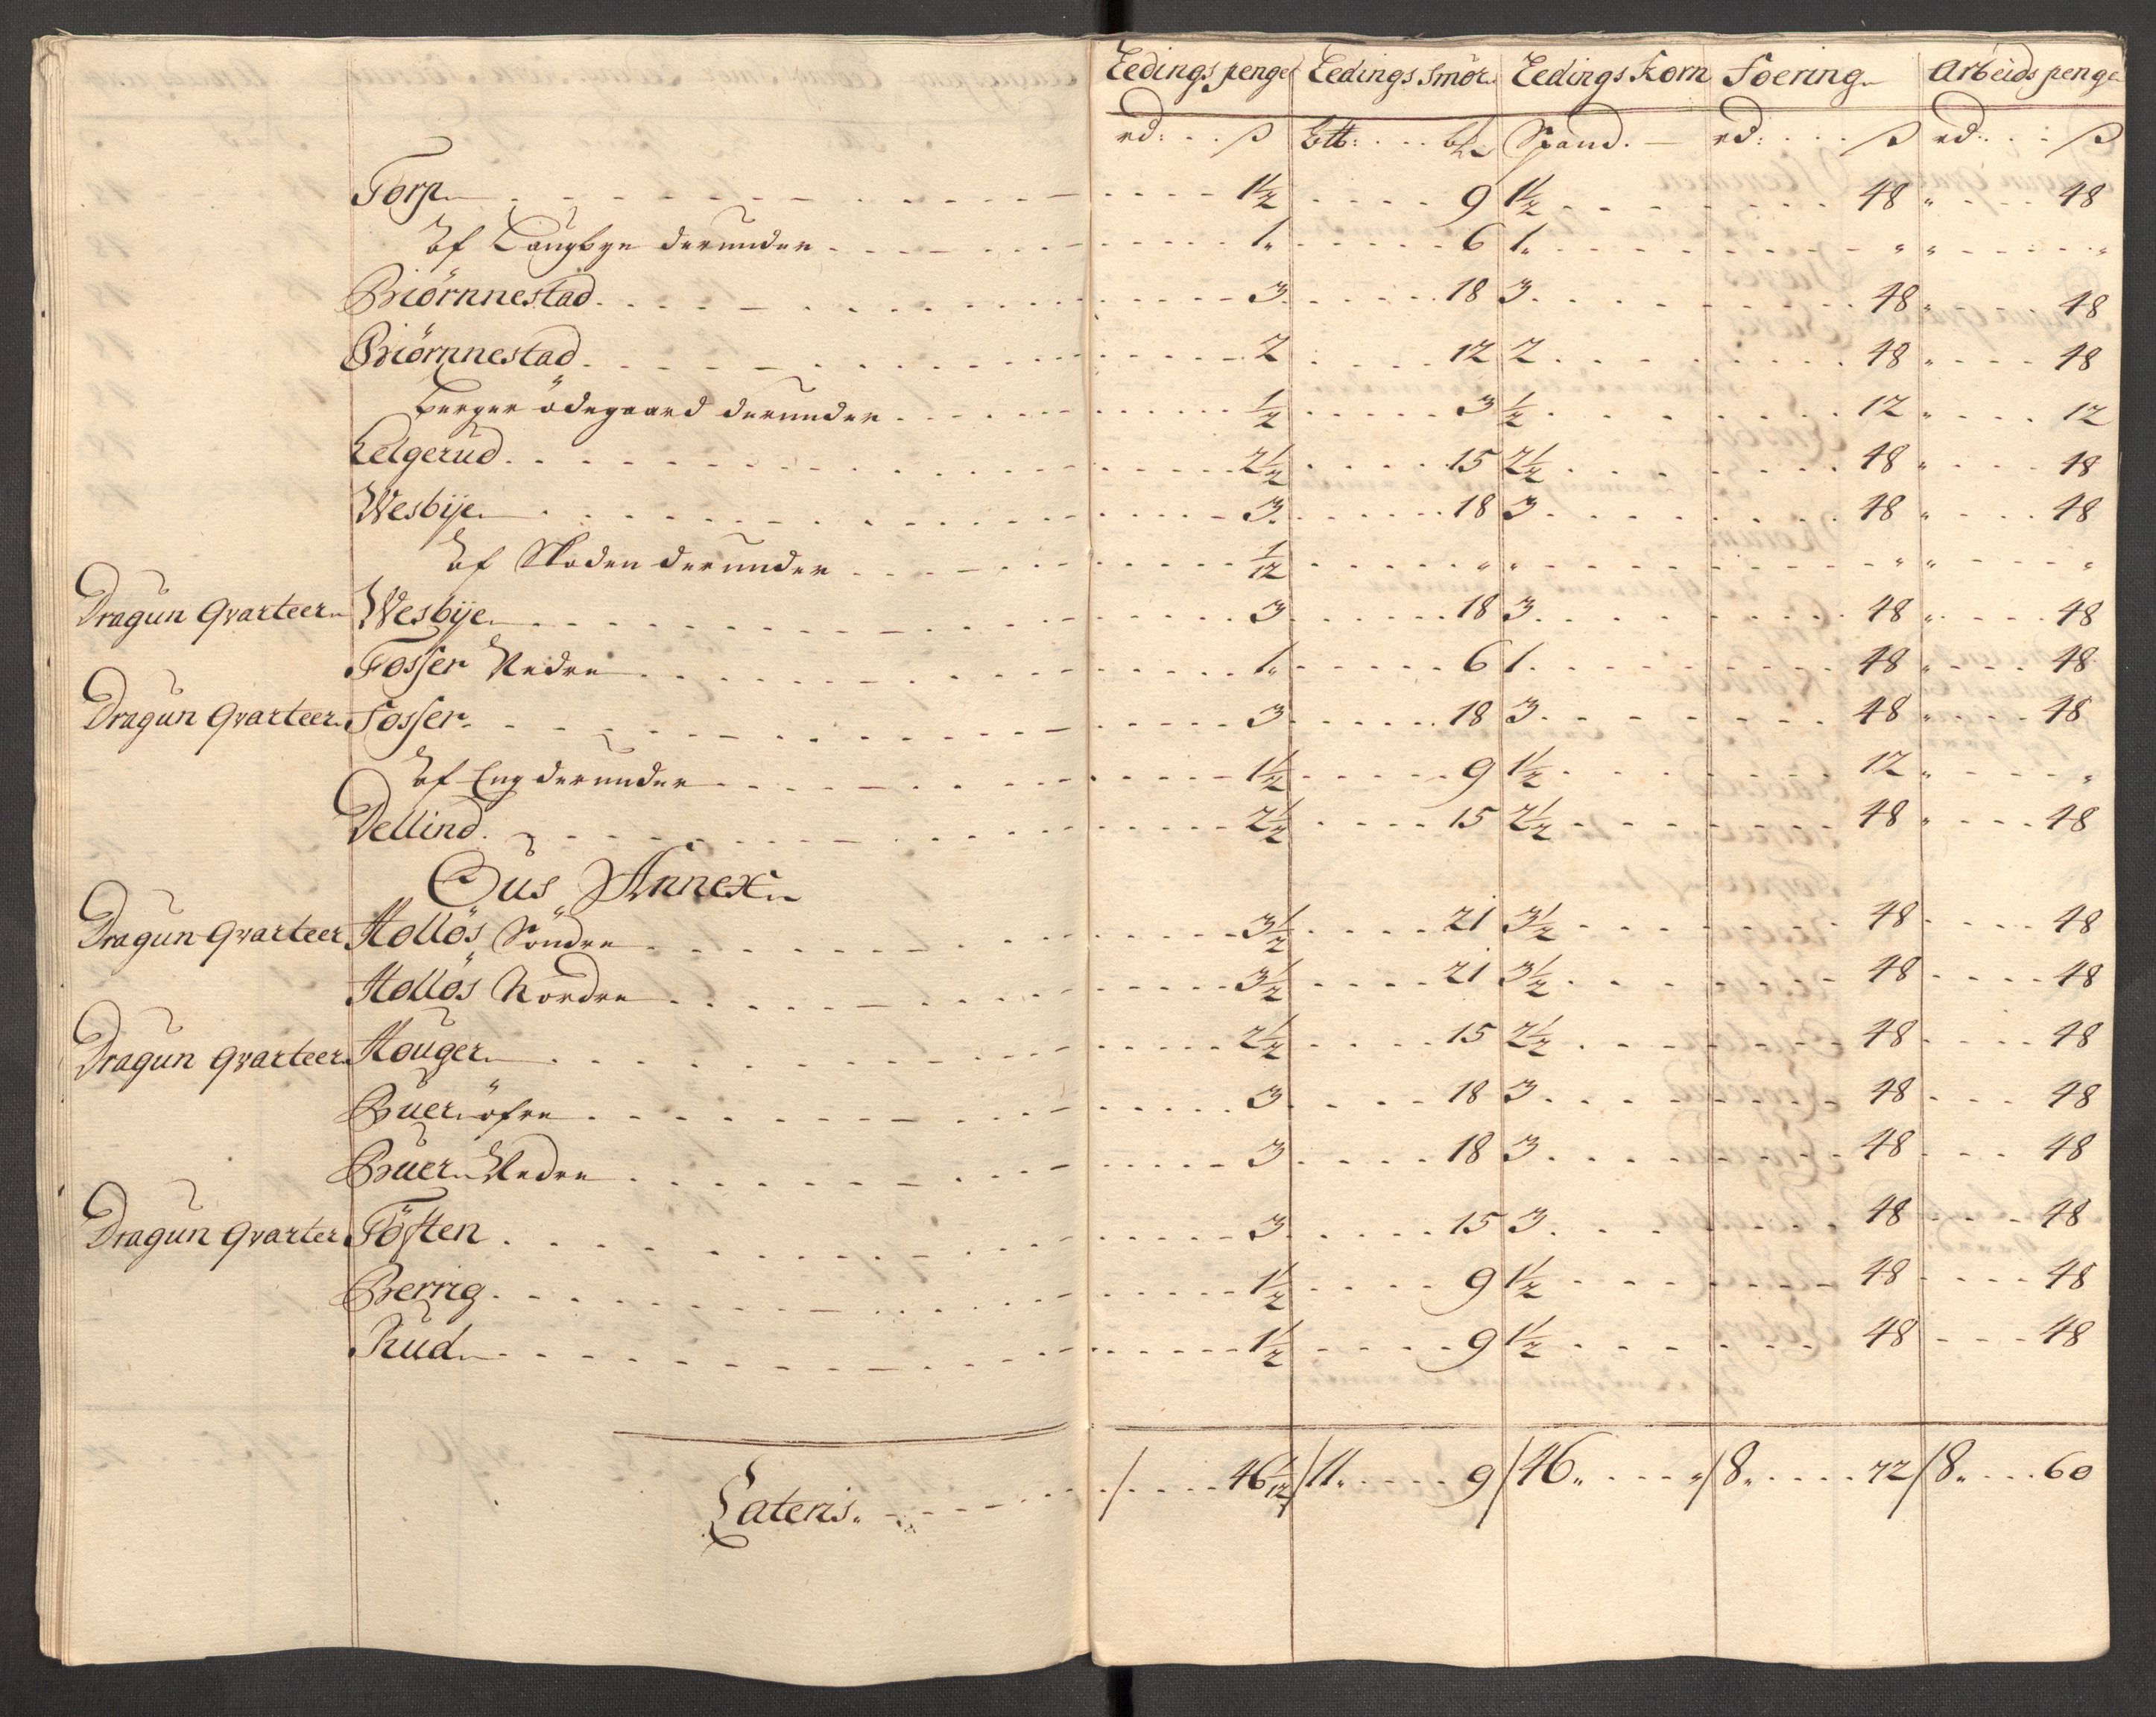 Ledings penge Ledings Smör Ledings Korn Foering Arbeids penge
rd: ß Spand. rd: ß rd: ß
Torp 1½ 9 1½ 48 " 48
Af Langbye derunder 1 " 6 1 " " " "
Biörnnestad 3 18 3 48 " 48
Biörnnestad 2 12 2 48 " 48
Berger ödegaard derunder ½ 3 ½ 12 " 12
Helgerud 2½ 15 2½ 48 " 48
Wesbije 3 18 3 48 " 48
Af derunder 1/12 " " " " "
Dragun Qvarteer Wesbije 3 18 3 48 " 48
Fosser Nedre 1 " 6 1 48 " 48
Dragun Qvarteer Fosser 3 18 3 48 " 48
Af Eng derunder 1½ 9 1½ 12 " "
Dellind 2½ 15 2½ 48 " 48
Ous Annex
Dragun Qvarteer Hollös Söndre 3½ 21 3½ 48 48
Hollös Nordre 3½ 21 3½ 48 48
Dragun Qvarteer Houger 2½ 15 2½ 48 48
Buer öfre 3 18 3 48 48
Buer Nedre 3 18 3 48 48
Dragun Qvarter Töften 3 15 3 48 48
Berrig 1½ 9 1½ 48 48
Rud 1½ 9 1½ 48 48
Lateris 46 1/12 11 " 9 46 " " 8 " 72 8 " 60